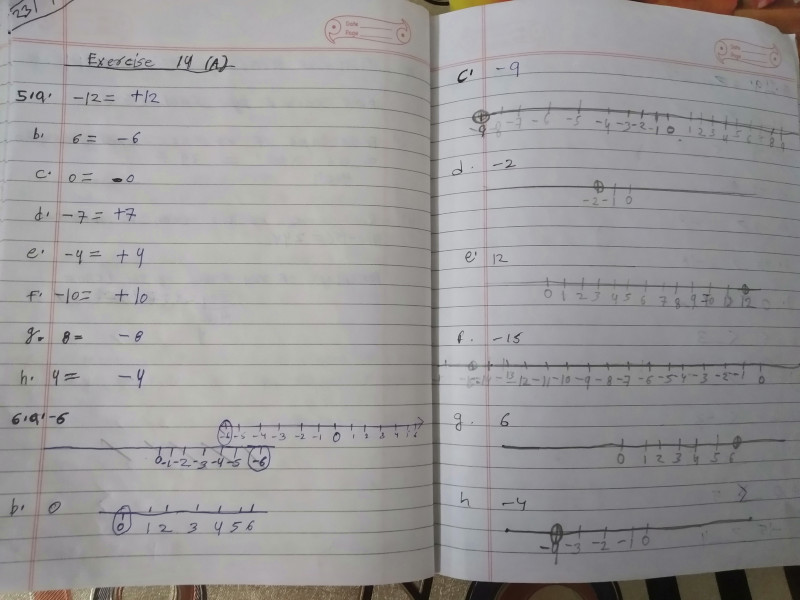 23/1
Date
Page
Exercise 14 (A)
5.a. -12 = +12
b. 6 = -6
c. 0 = -0
d. -7 = +7
e. -4 = +4
f. -10 = +10
g. 8 = -8
h. 4 = -4
6.a. -6
-6 -5 -4 -3 -2 -1 0 1 2 3 4 5 6
0 -1 -2 -3 -4 -5 -6
b. 0
0 1 2 3 4 5 6
Date
Page
c. -9
-9 -8 -7 -6 -5 -4 -3 -2 -1 0 1 2 3 4 5 6 7 8 9
d. -2
-2 -1 0
e. 12
0 1 2 3 4 5 6 7 8 9 10 11 12
f. -15
-15 -14 -13 -12 -11 -10 -9 -8 -7 -6 -5 -4 -3 -2 -1 0
g. 6
0 1 2 3 4 5 6
h -4
-4 -3 -2 -1 0